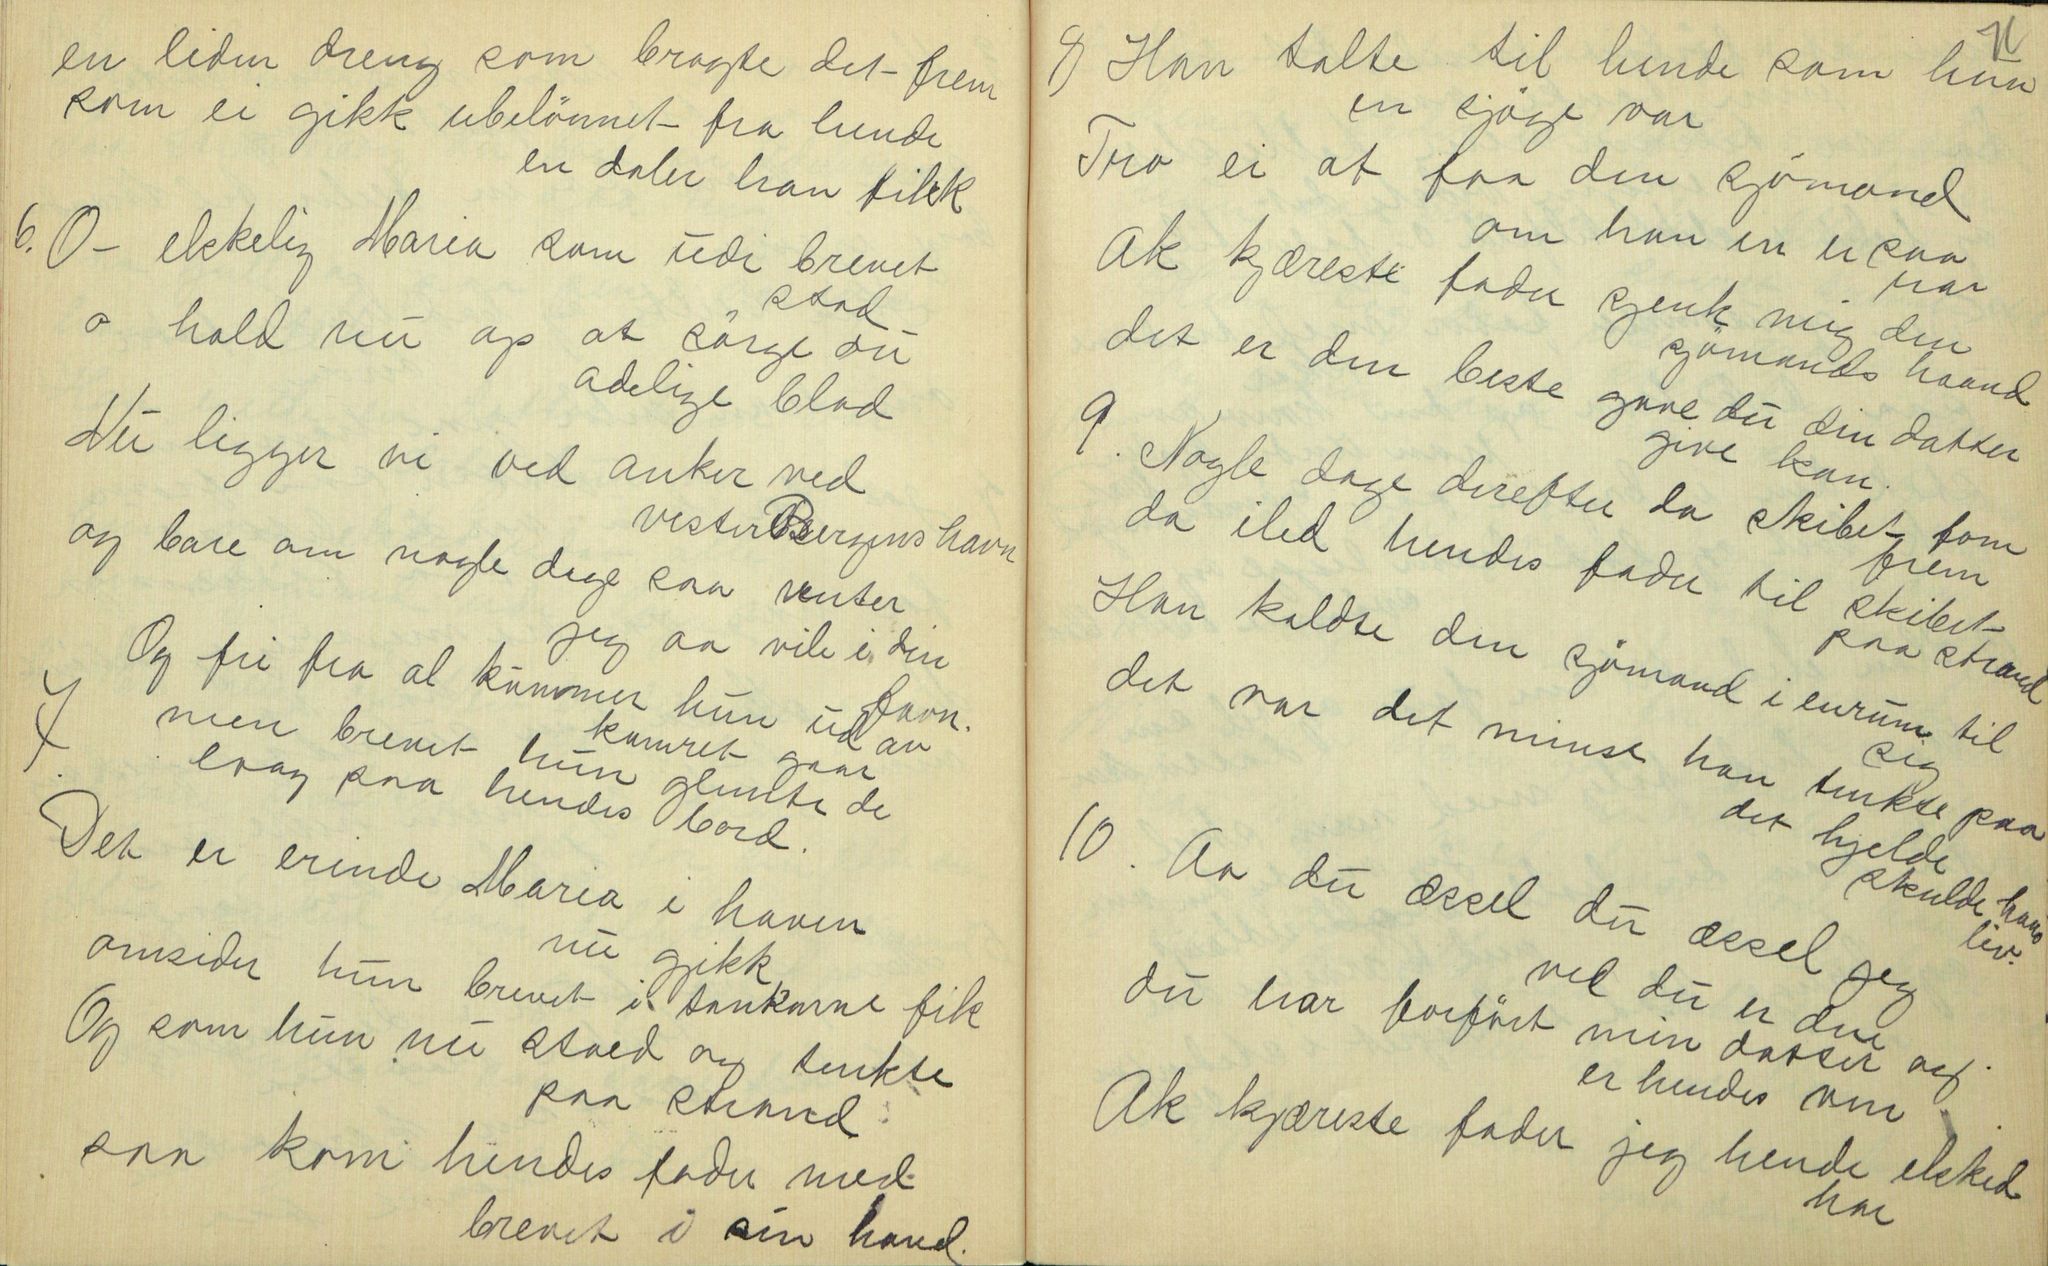 en liden dreng som bragte det frem
som ei gikk ubelönnet fra hende
en daler han fikk
6. O- elskelig Maria som udi brevet
stod
o hold nu op at sörge du
adelige blod
Nu ligger vi ved anker ved
vester Bergens havn
og bare om nogle dage saa venter
jeg aa vile i din
favn.
7. Og fri fra al kummer hun ud av
kamret gaar
men brevet hun glemte de
laag paa hendes bord.
Det er erinde Maria i haven
nu gikk
omsider hun brevet i tankarne fik
Og som hun nu stoed og tenkte
paa strand
saa kom hendes fader med
brevet i sin hand.
8) Han talte til hende som hun
en sjöge var
Tro ei at faa den sjömand
om han en er saa
rar
Ak kjæreste fader sjenk mig den
sjömands haand
det er den beste gave du din datter
give kan.
9. Nogle dage derefter da skibet kom
frem
da iled hendes fader til skibet
paa strand
Han kaldte den sjömand i enrum til
sig
det var det minst han tenkte paa
det hjelde
skulde hans
liv.
10. Aa du æssel du æssel jeg
vel du er den
du har forfört min datter og
er hendes ven
Ak kjæreste fader jeg hende elsked
har